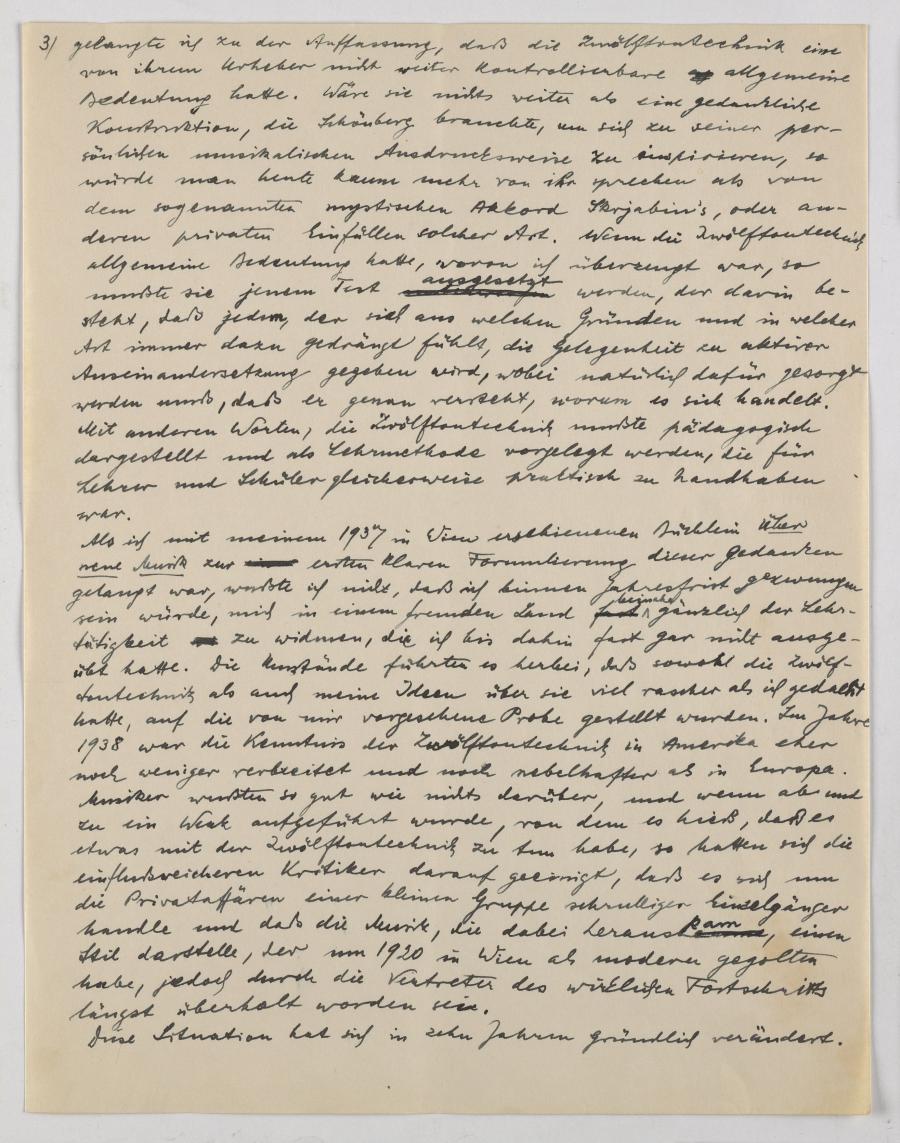 3) gelangte ich zu der Auffassung, daß die Zwölftontechnik eine
von ihrem Urheber nicht weiter kontrollierbare allgemeine
Bedeutung hatte. Wäre sie nichts weiter als eine gedankliche
Konstruktion, die Schönberg brauchte, um sich zu seiner per-
sönlichen musikalischen Ausdrucksweise zu inspirieren, so
würde man heute kaum mehr von ihr sprechen als von
dem sogenannten mystischen Akkord Skrjabin's, oder an-
deren privaten Einfällen solcher Art. Wenn die Zwölftontechnik
allgemeine Bedeutung hatte, wovon ich überzeugt war, so
mußte sie jenem Test ausgesetzt werden, der darin be-
steht, daß jedem, der sich aus welchen Gründen und in welcher
Art immer dazu gedrängt fühlt, die Gelegenheit zu aktiver
Auseinandersetzung gegeben wird, wobei natürlich dafür gesorgt
werden muß, daß er genau versteht, worum es sich handelt.
Mit anderen Worten, die Zwölftontechnik mußte pädagogisch
dargestellt und als Lehrmethode vorgelegt werden, die für
Lehrer und Schüler gleicherweise praktisch zu handhaben
war.
Als ich mit meinem 1937 in Wien erschienenen Büchlein Über
neue Musik zur ersten klaren Formulierung dieser Gedanken
gelangt war, wußte ich nicht, daß ich binnen Jahresfrist gezwungen
sein würde, mich in einem fremden Land beinahe gänzlich der Lehr-
tätigkeit zu widmen, die ich bis dahin fast gar nicht ausge-
übt hatte. Die Umstände führten es herbei, daß sowohl die Zwölf-
tontechnik als auch meine Ideen über sie viel rascher als ich gedacht
hatte, auf die von mir vorgesehene Probe gestellt wurden. Im Jahre
1938 war die Kenntnis der Zwölftontechnik in Amerika eher
noch weniger verbreitet und noch nebelhafter als in Europa.
Musiker wußten so gut wie nichts darüber, und wenn ab und
zu ein Werk aufgeführt wurde, von dem es hieß, daß es
etwas mit der Zwölftontechnik zu tun habe, so hatten sich die
einflußreicheren Kritiker darauf geeinigt, daß es sich um
die Privataffären einer kleinen Gruppe schrulliger Einzelgänger
handle und daß die Musik, die dabei herauskam, einen
Stil darstelle, der um 1920 in Wien als modern gegolten
habe, jedoch durch die Vertreter des wirklichen Fortschritts
längst überholt worden sei.
Diese Situation hat sich in zehn Jahren gründlich verändert.